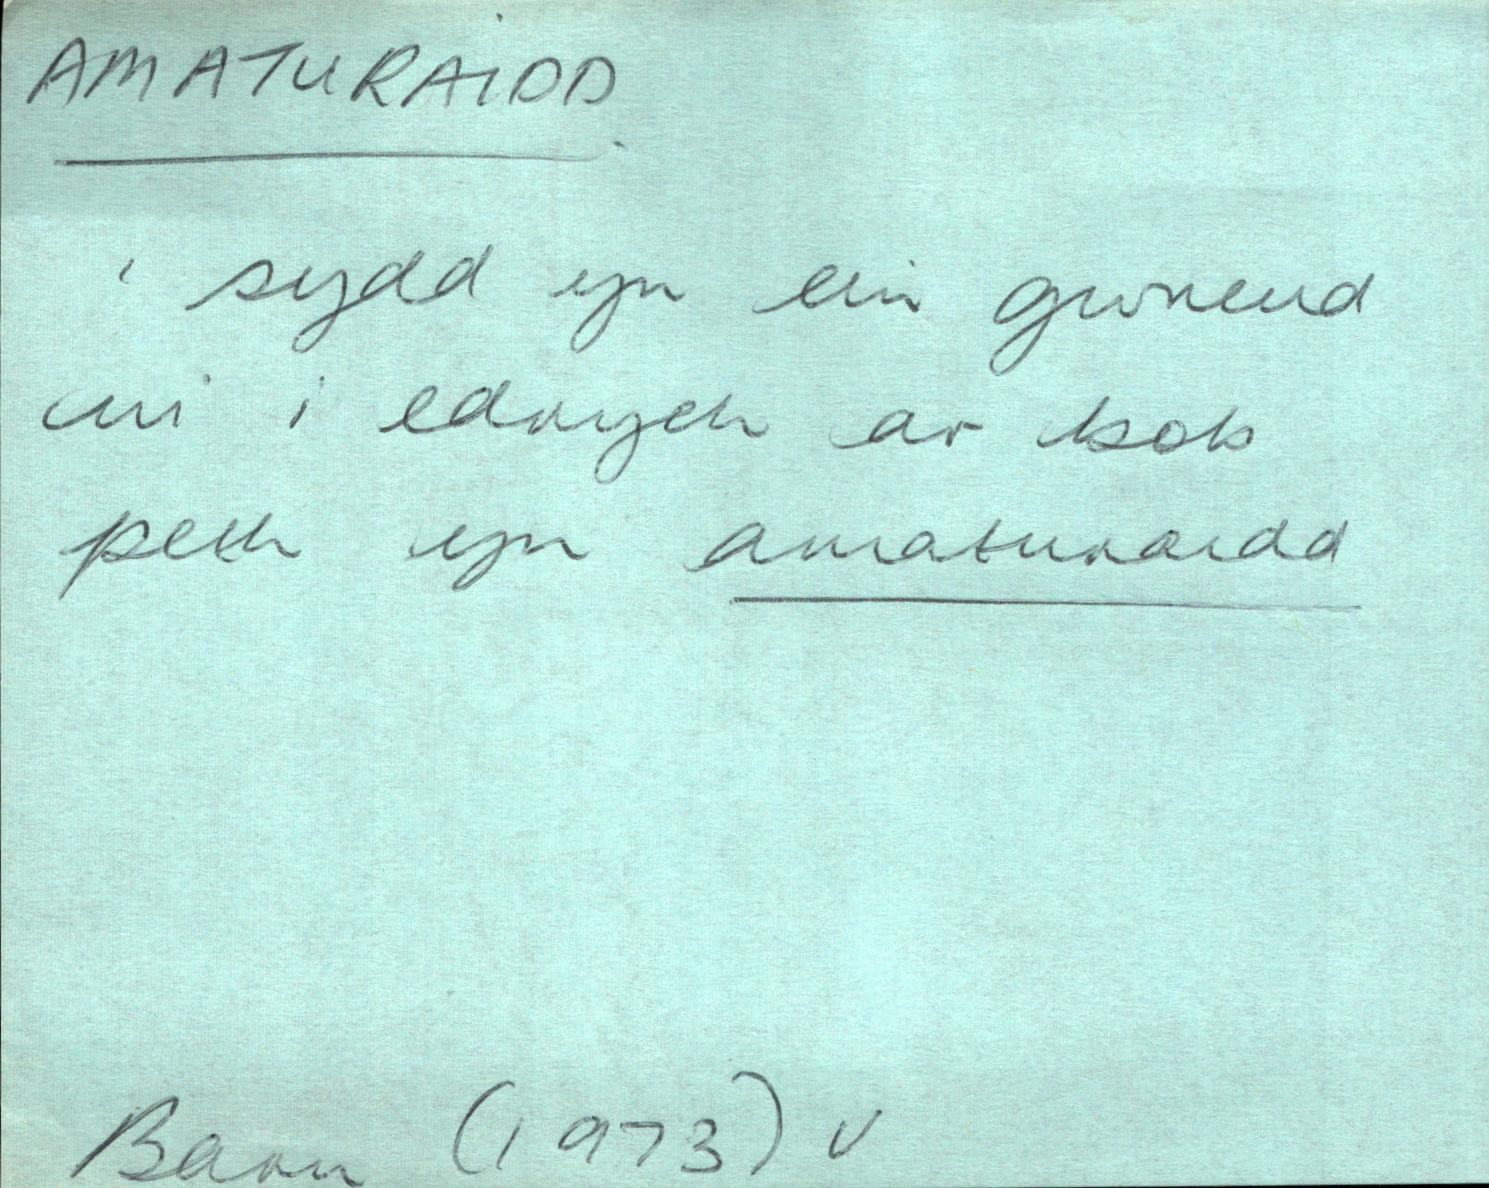 AMATURAIDD
' sydd yn ein gwneud
ni i edrych ar bob
peth yn amaturaidd
Barn (1973) v